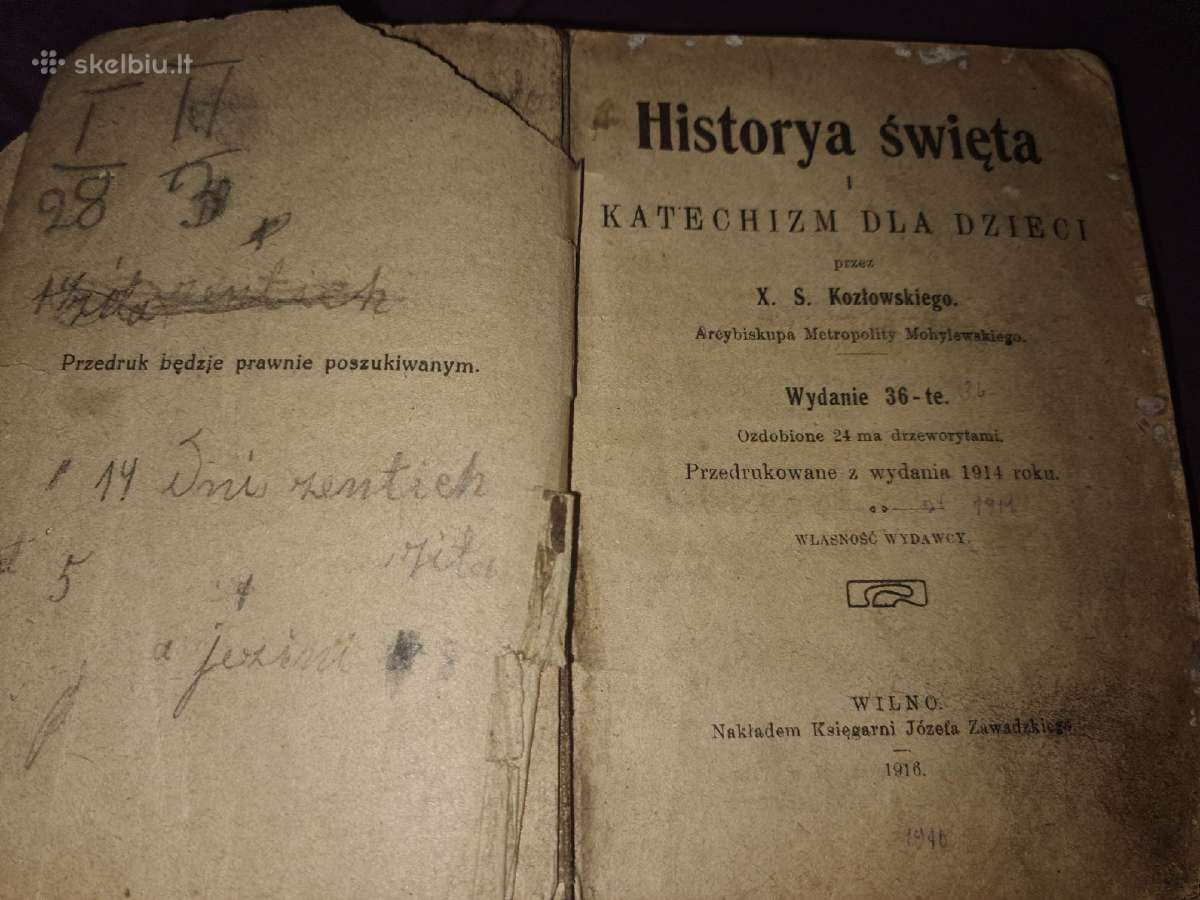 skelbiu.lt
I II
28 3
Przedruk będzie prawnie poszukiwanym.
14 Dni zentich
żita
5
a jezini
Historya święta
I
KATECHIZM DLA DZIECI
przez
X. S. Kozłowskiego.
Arcybiskupa Metropolity Mohylewskiego.
Wydanie 36-te. 36
Ozdobione 24 ma drzeworytami.
Przedrukowane z wydania 1914 roku.
WŁASNOŚĆ WYDAWCY.
WILNO.
Nakładem Księgarni Józefa Zawadzkiego
1916.
1946